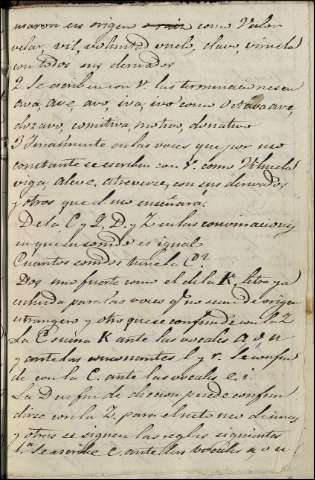 usaron en su origen como Valer
velar, vil, voluntad vuelo, clavo, viruela
con todos sus derivados
2. Se escriben con v. las terminaciones en
ava, ave, avo, iva, ivo como octava ave,
dozavo, comitiva, motivo, donativo
3 Finalmente en las voces que por uso
constante se escriben con v. como Vihuela
viga, aleve, atreverse, con sus derivados
y otros que el uso enseñara.
De la C y Q, D. y Z en las convinaciones
en que su sonido es igual
Cuantos sonidos tiene la C?
Dos uno fuerte como el de la K. letra ya
para las voces qe no sean de origen
estrangero y otro que se confunde con la Z
La C suena K ante las vocales a, o, u
y ante las consonantes l y r. Se confun
de con la C. ante las vocales e, i.
La D en fin de diccion puede confun
dirse con la Z. para el recto uso de unas
y otras se siguen las reglas siguientes
1a Se escribe C. ante las vocales a o u